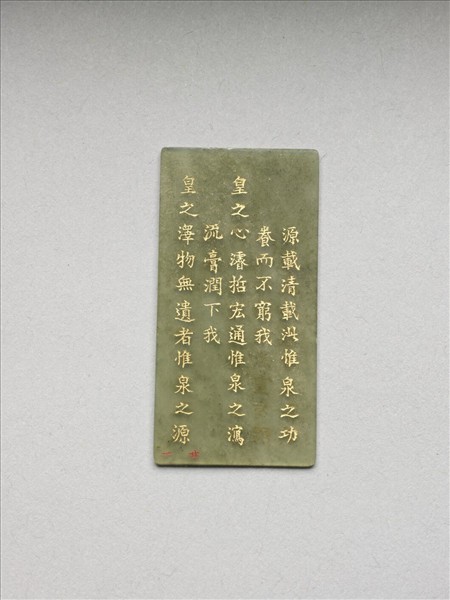 源載清載泚惟泉之功
養而不窮我
皇之心濬哲宏通惟泉之瀉
流膏潤下我
皇之澤物無遺者惟泉之源